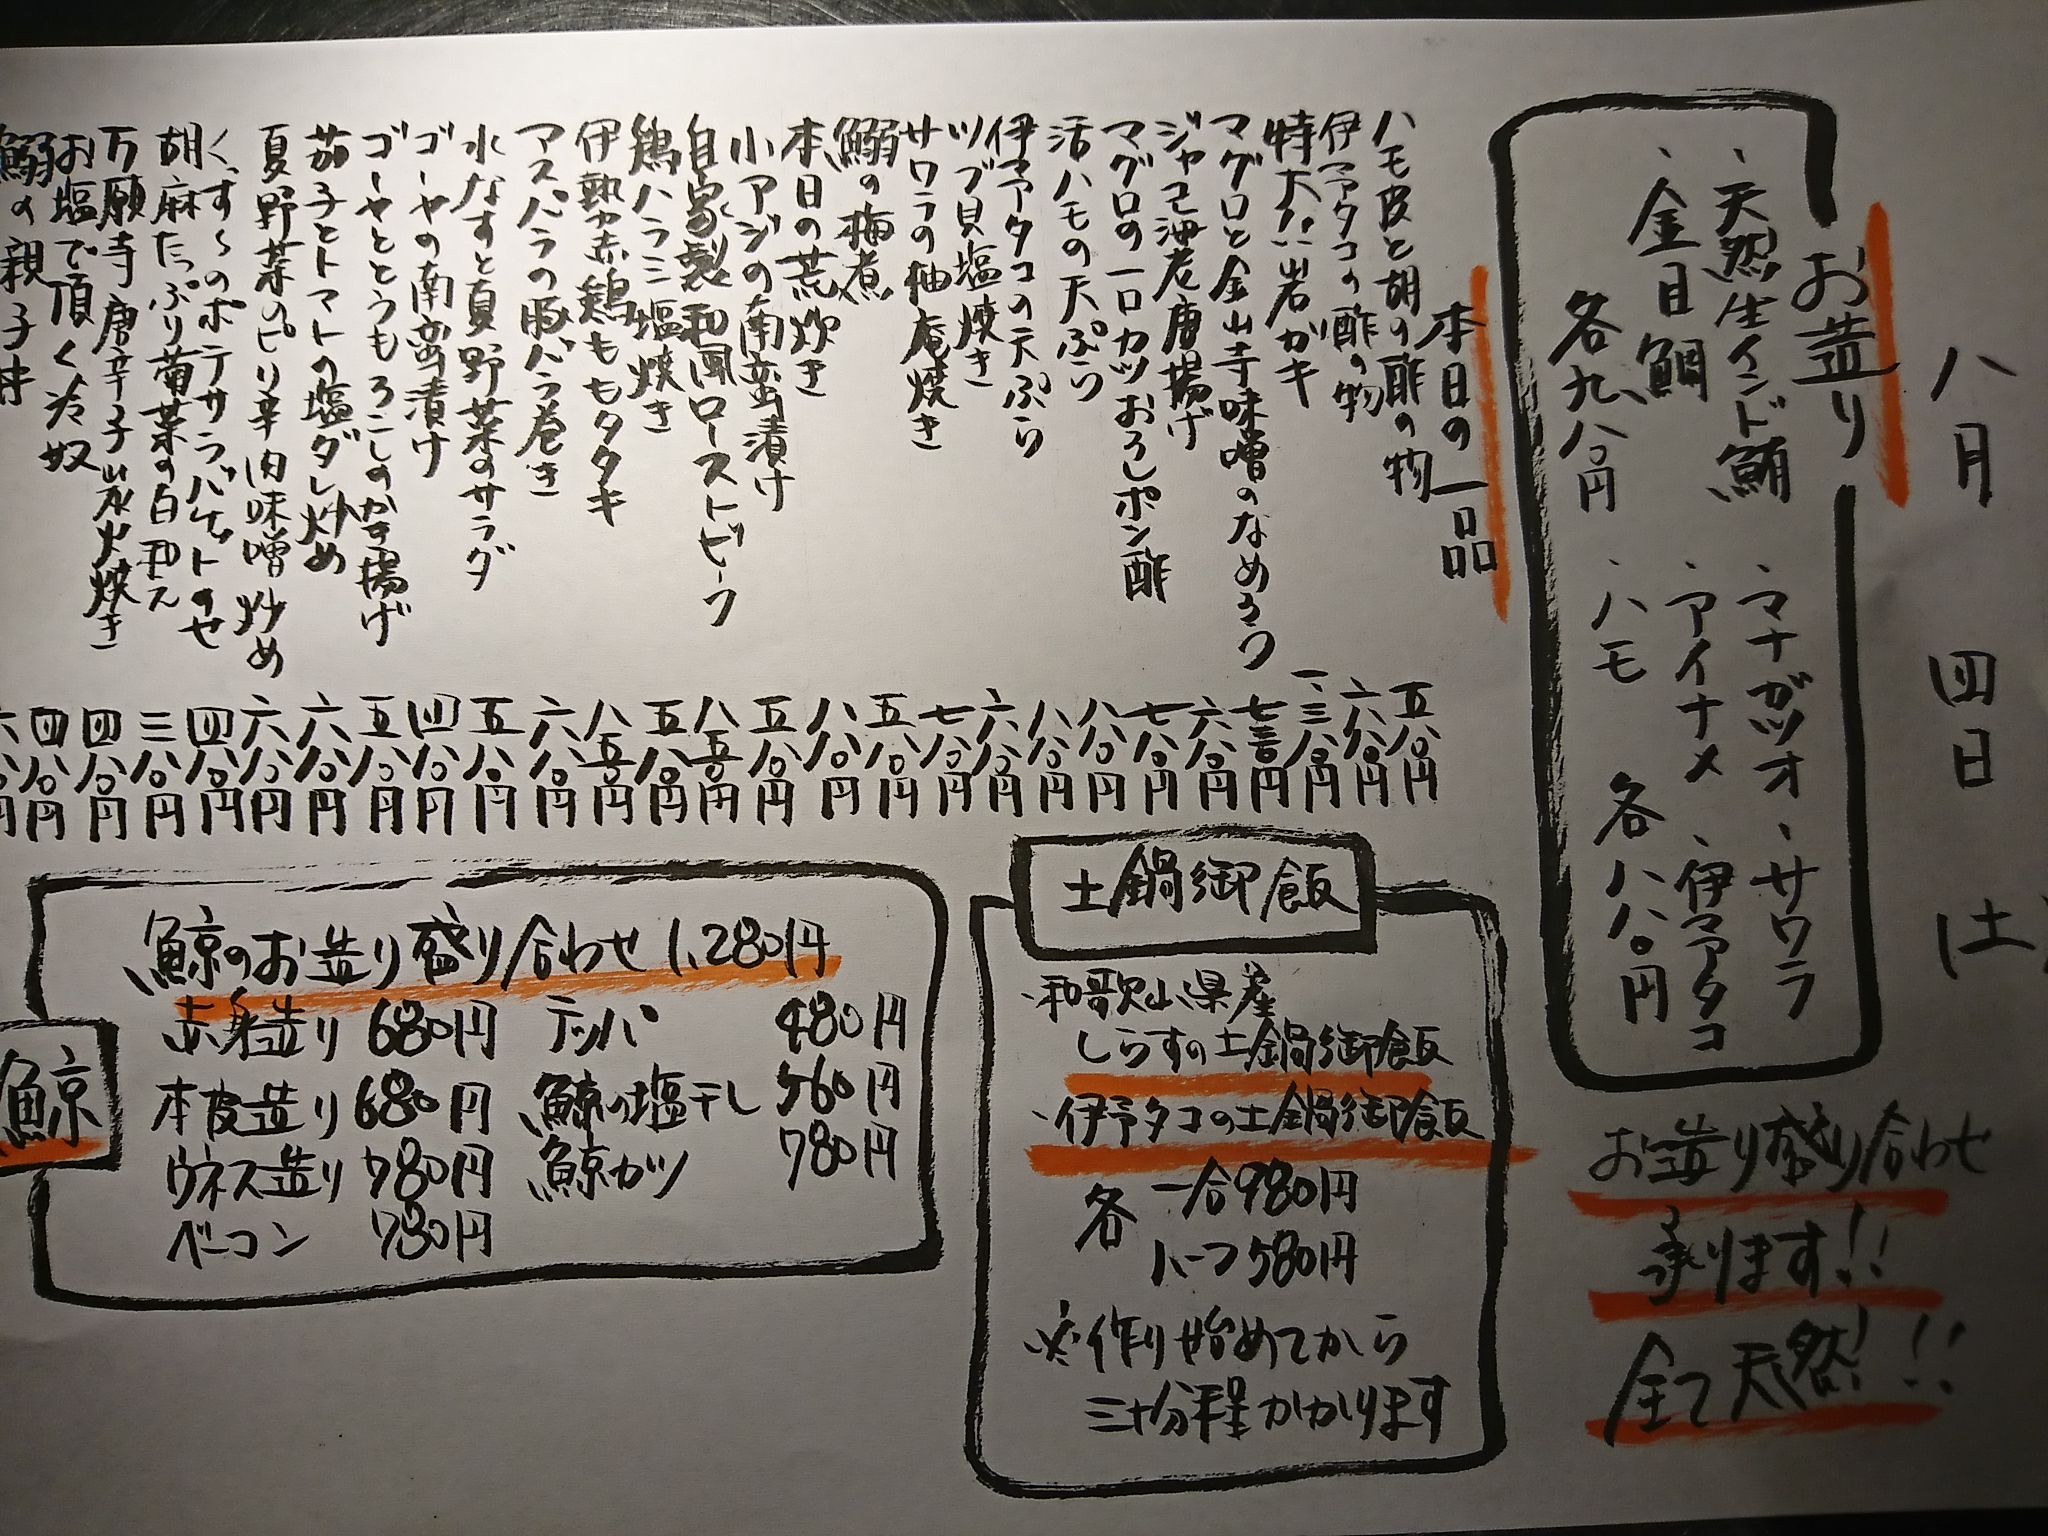 八月 四日 (土)
お造り
・天然生インド鮪
・金目鯛
各九八〇円
・マナガツオ・サワラ
・アイナメ・伊予タコ
・ハモ 各八八〇円
お造り盛り合わせ
承ります!!
全て天然!!!
本日の一品
ハモ皮と胡の酢の物 五八〇円
伊予タコの酢の物 六八〇円
特大 岩カキ 一、三八〇円
マグロと金山寺味噌のなめろう 七三〇円
ジャコ海老唐揚げ 六八〇円
マグロの一口カツおろしポン酢 七八〇円
活ハモの天ぷら 八八〇円
伊予タコの天ぷら 八八〇円
ツブ貝塩焼き 六八〇円
サワラの柚庵焼き 七八〇円
鰯の梅煮 五八〇円
本日の荒炊き 八八〇円
小アジの南蛮漬け 五八〇円
自家製和風ローストビーフ 八五〇円
鶏ハラミ塩焼き 五八〇円
伊勢赤鶏ももタタキ 八五〇円
アスパラの豚バラ巻き 六八〇円
水なすと夏野菜のサラダ 五八〇円
ゴーヤの南蛮漬け 四八〇円
ゴーヤととうもろこしのかき揚げ 五八〇円
茄子とトマトの塩ダレ炒め 六八〇円
夏野菜のピリ辛肉味噌炒め 六八〇円
くんすーのポテサラバケットのせ 四八〇円
胡麻たっぷり菊菜の白和え 三八〇円
万願寺唐辛子炭火焼き 四八〇円
お塩で頂く冷奴 四八〇円
鰯の親子丼 六八〇円
土鍋御飯
・和歌山県産
しらすの土鍋御飯
・伊予タコの土鍋御飯
各 一合980円
ハーフ580円
※作り始めてから
三十分程かかります
鯨
鯨のお造り盛り合わせ 1,280円
赤身造り 680円 テッパ 480円
本皮造り 680円 鯨の塩干し 560円
ウネス造り 780円 鯨カツ 780円
ベーコン 730円